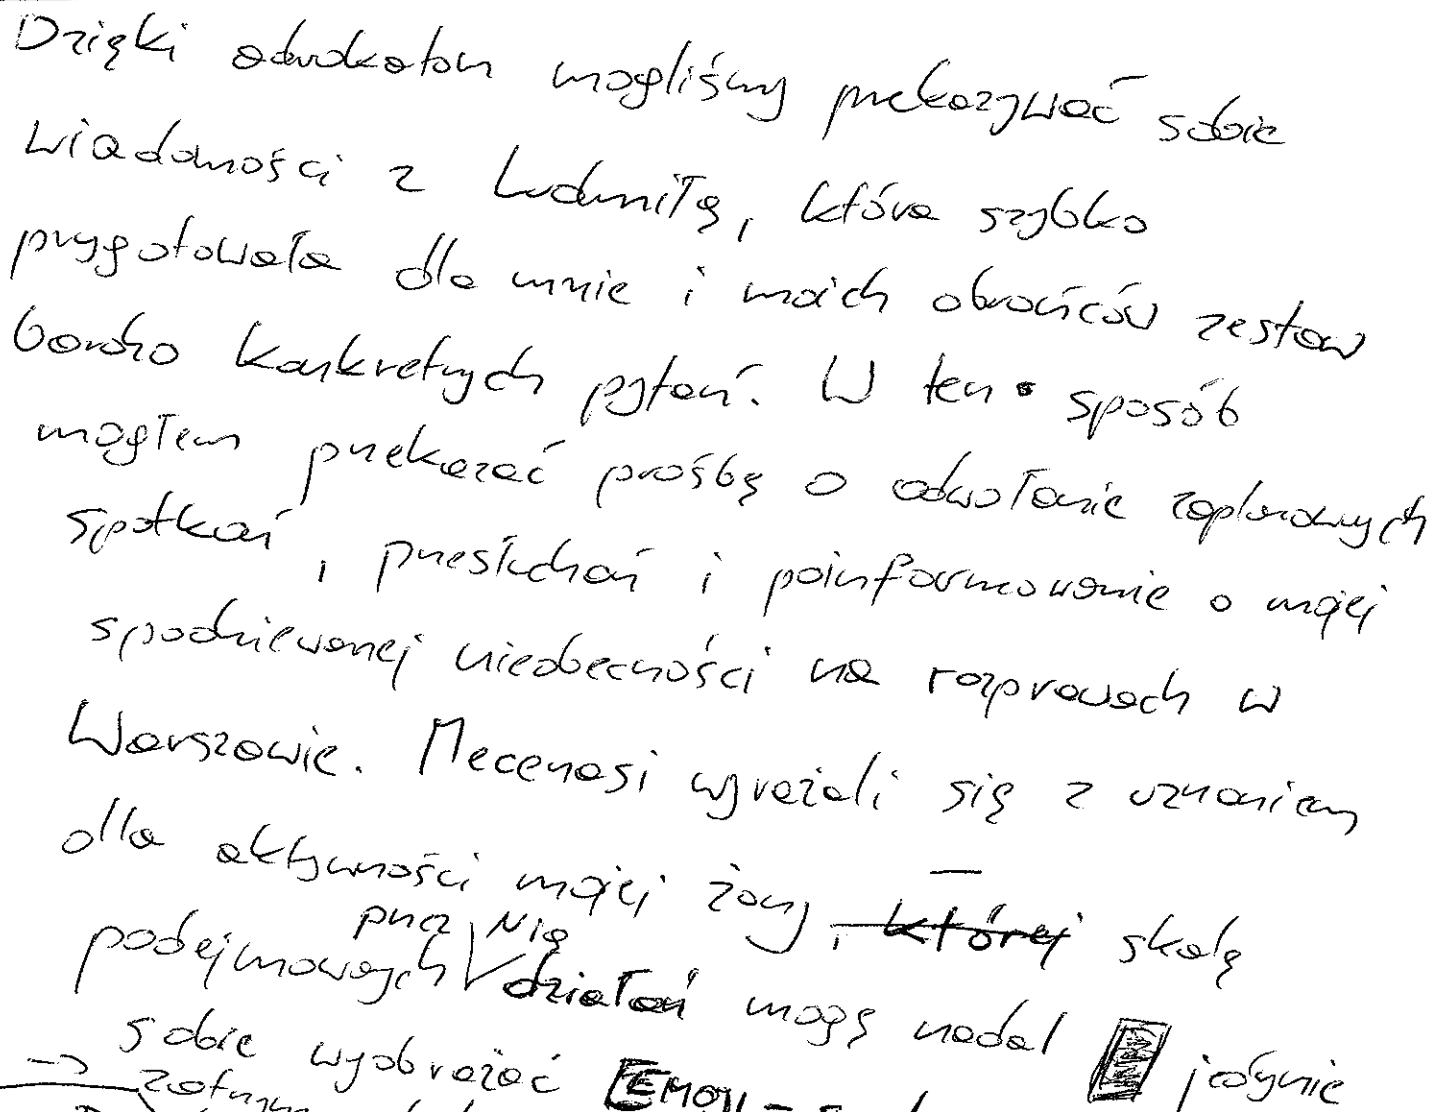 Dzięki adwokatom mogliśmy przekazywać sobie
wiadomości z Ludmiłą, która szybko
przygotowała dla mnie i moich obrońców zestaw
bardzo konkretnych pytań. W ten sposób
mogłem przekazać prośbę o odwołanie zaplanowanych
spotkań, przesłuchań i poinformowanie o mojej
spodziewanej nieobecności na rozprawach w
Warszawie. Mecenasi wyrażali się z uznaniem
dla aktywności mojej żony, której – skalę
przez nią
podejmowanych działań mogę nadal jedynie
sobie wyobrażać